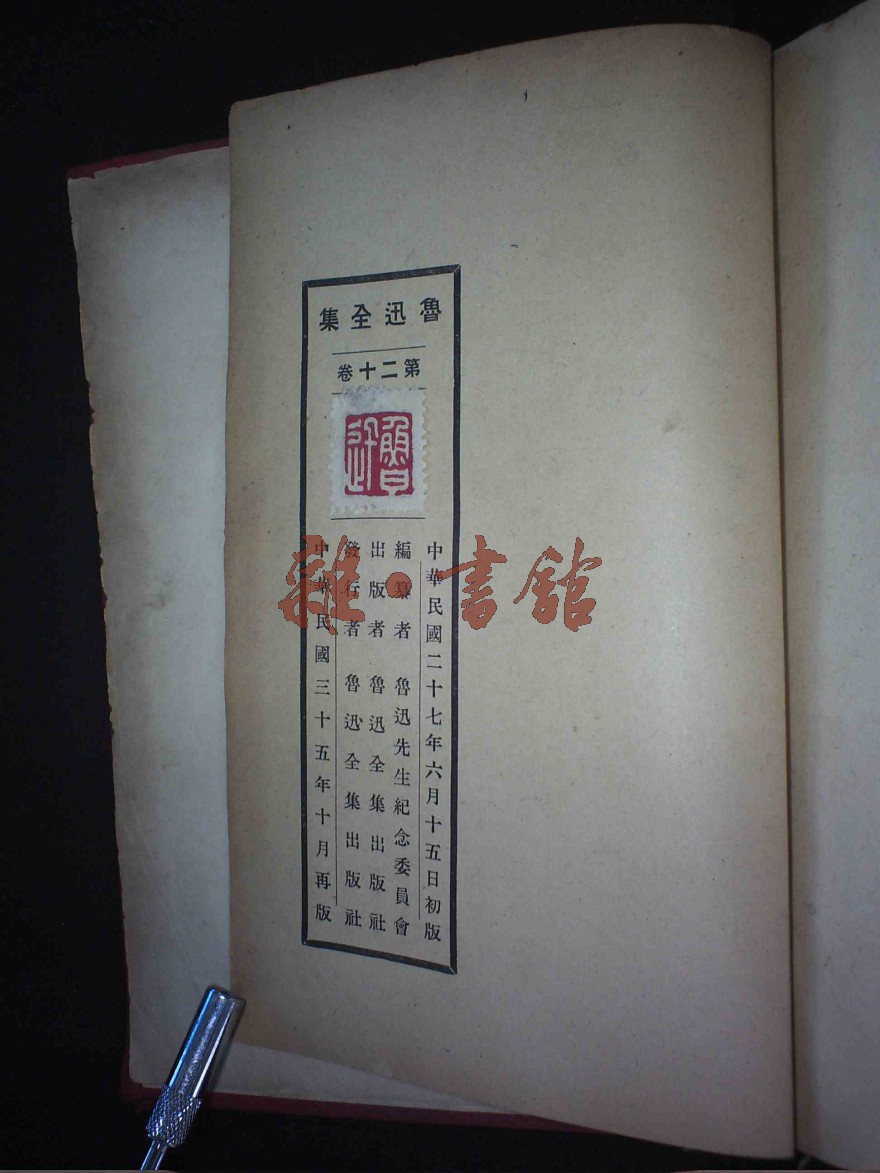 魯迅全集
第二十卷
魯迅
中華民國二十七年六月十五日初版
編纂者 魯迅先生紀念委員會
出版者 魯迅全集出版社
發行者 魯迅全集出版社
中華民國三十五年十月再版
雜·書館